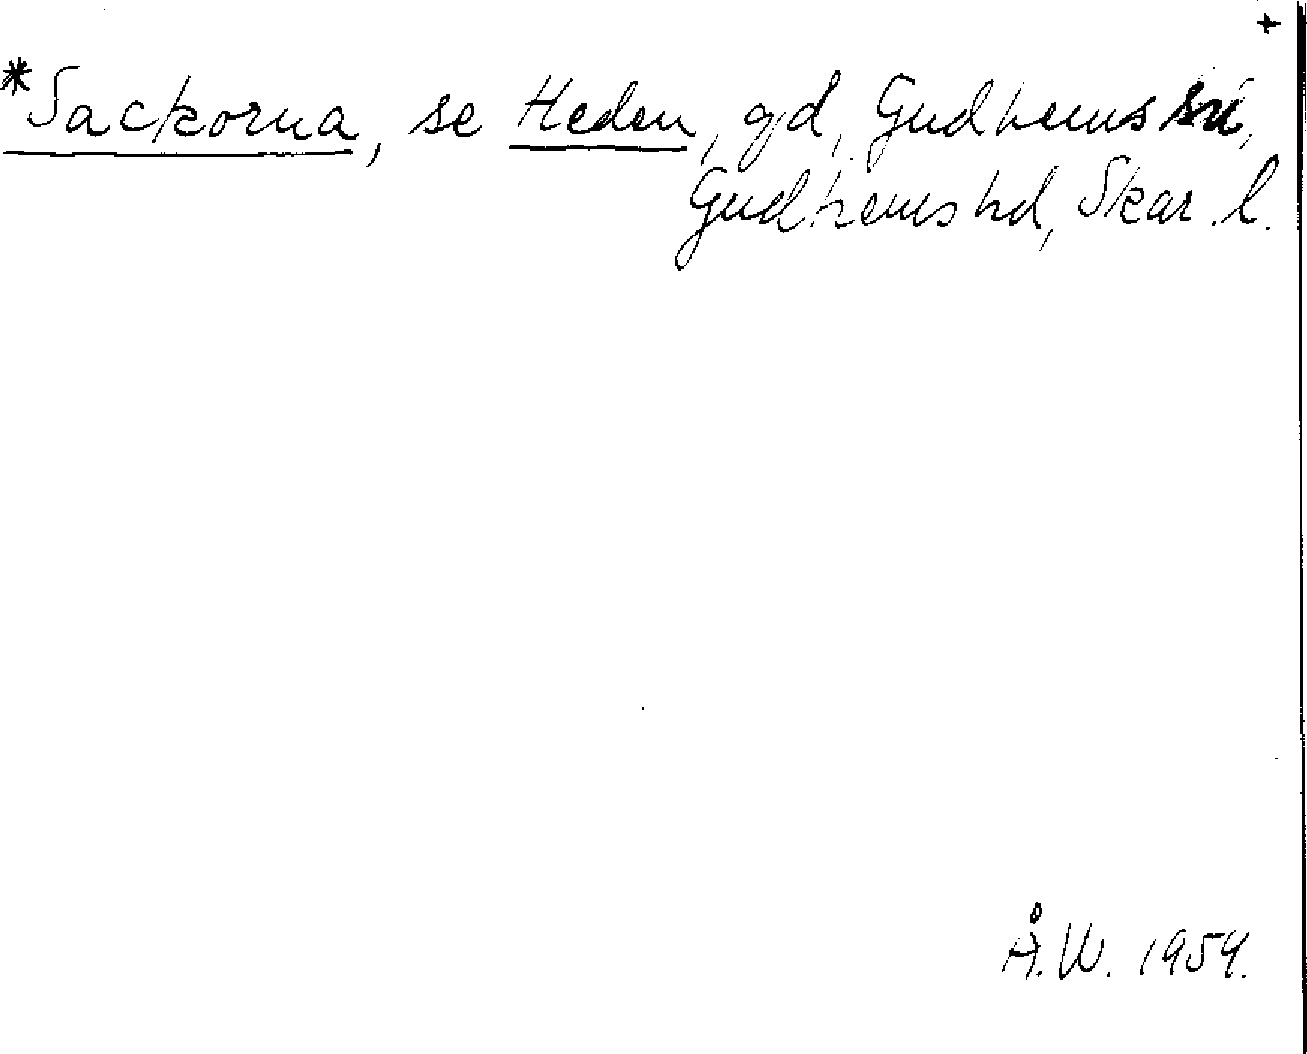 +
*Sackorna, se Heden, gd, Gudhems sn,
Gudhems hd, Skar. l.
Å.W. 1954.